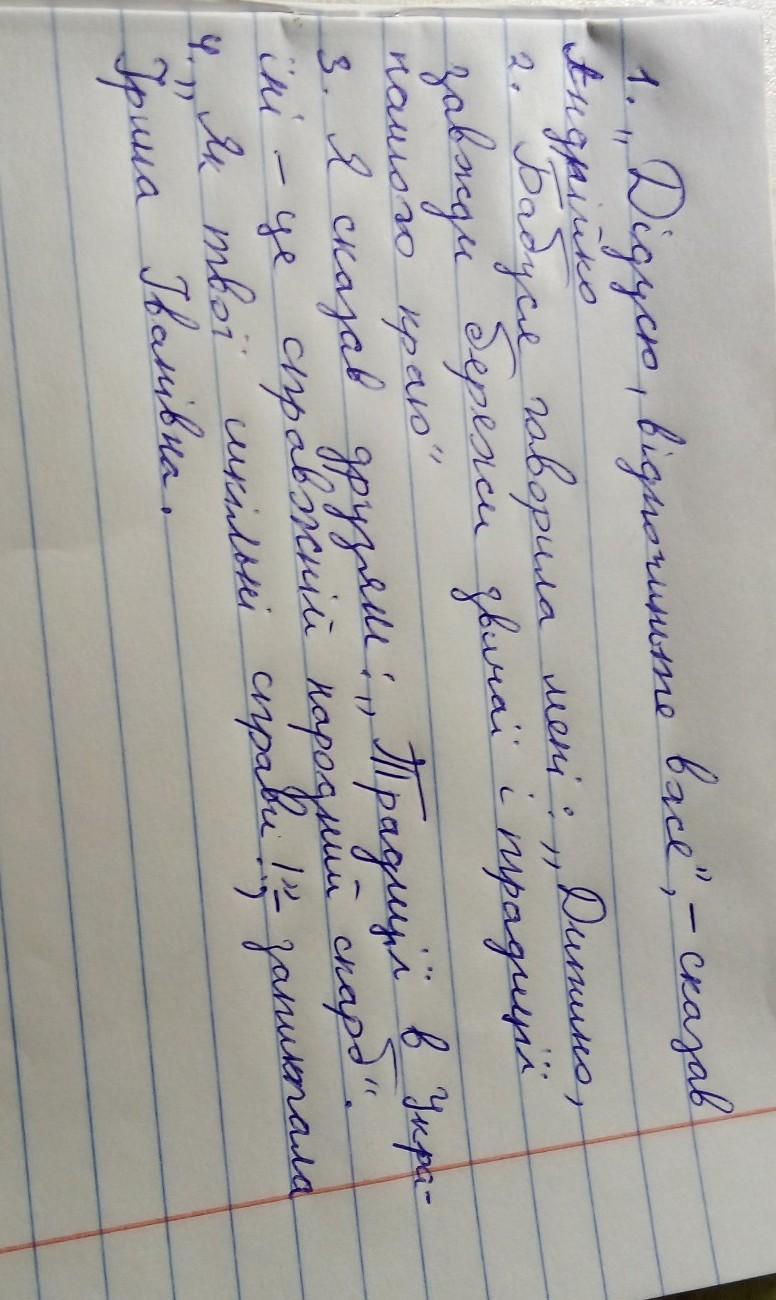 1. "Дідусю, відпочиньте вже", - сказав
Андрійко
2. Бабуся говорила мені: „Дитино,
завжди бережи звичаї і традиції
нашого краю"
3. Я сказав друзям: „Традиції в Укра-
їні - це справжній народний скарб".
4. „Як твої шкільні справи!", - запитала
Ірина Іванівна.